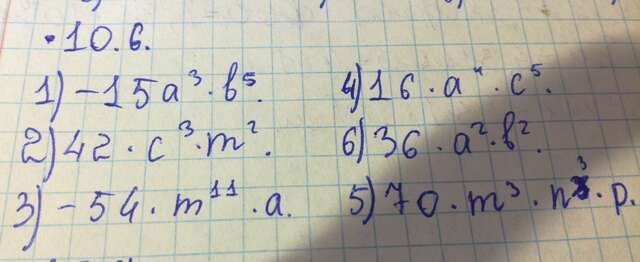 ·10.6.
1) -15a³·b⁵.
4) 16·a⁴·c⁵.
2) 42·c³·m².
6) 36·a²·b².
3) -54·m¹¹·a.
5) 70·m³·n³·p.